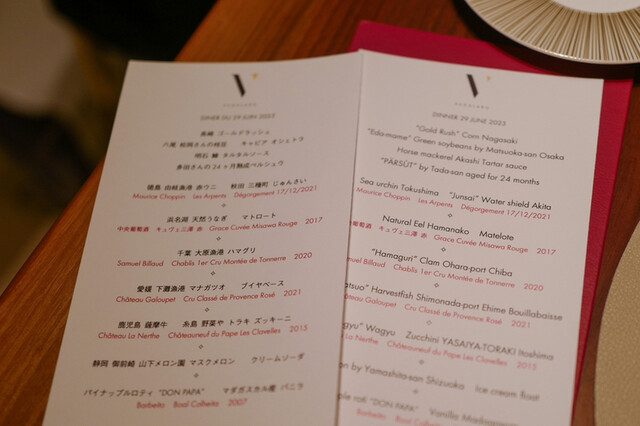 V
DINER DU 29 JUIN 2023
長崎 ゴールドラッシュ
八尾 松岡さんの枝豆 キャビア オシェトラ
明石 鯵 タルタルソース
多田さんの24ヶ月熟成ペルシュウ
徳島 由岐漁港 赤ウニ 秋田 三種町 じゅんさい
Maurice Choppin Les Arpents Dégorgement 17/12/2021
浜名湖 天然うなぎ マトロート
中央葡萄酒 キュヴェ三澤 赤 Grace Cuvée Misawa Rouge 2017
千葉 大原漁港 ハマグリ
Samuel Billaud Chablis 1er Cru Montée de Tonnerre 2020
愛媛 下灘漁港 マナガツオ ブイヤベース
Château Galoupet Cru Classé de Provence Rosé 2021
鹿児島 薩摩牛 糸島 野菜や トラキ ズッキーニ
Château La Nerthe Châteauneuf du Pape Les Clavelles 2015
静岡 御前崎 山下メロン園 マスクメロン クリームソーダ
パイナップルロティ "DON PAPA" マダガスカル産 バニラ
Barbeito Boal Colheita 2007
V
DINNER 29 JUNE 2023
"Gold Rush" Corn Nagasaki
"Eda-mame" Green soybeans by Matsuoka-san Osaka
Horse mackerel Akashi Tartar sauce
"PÄRSÚT" by Tada-san aged for 24 months
Sea urchin Tokushima "Junsai" Water shield Akita
Maurice Choppin Les Arpents Dégorgement 17/12/2021
Natural Eel Hamanako Matelote
中央葡萄酒 キュヴェ三澤 赤 Grace Cuvée Misawa Rouge 2017
"Hamaguri" Clam Ohara-port Chiba
Billaud Chablis 1er Cru Montée de Tonnerre 2020
atsuo" Harvestfish Shimonada-port Ehime Bouillabaisse
eau Galoupet Cru Classé de Provence Rosé 2021
gyu" Wagyu Zucchini YASAIYA-TORAKI Itoshima
La Nerthe Châteauneuf du Pape Les Clavelles 2015
on by Yamashita-san Shizuoka Ice cream float
ple roti "DON PAPA" Vanilla Madagascar
Barbeito Boal Colheita